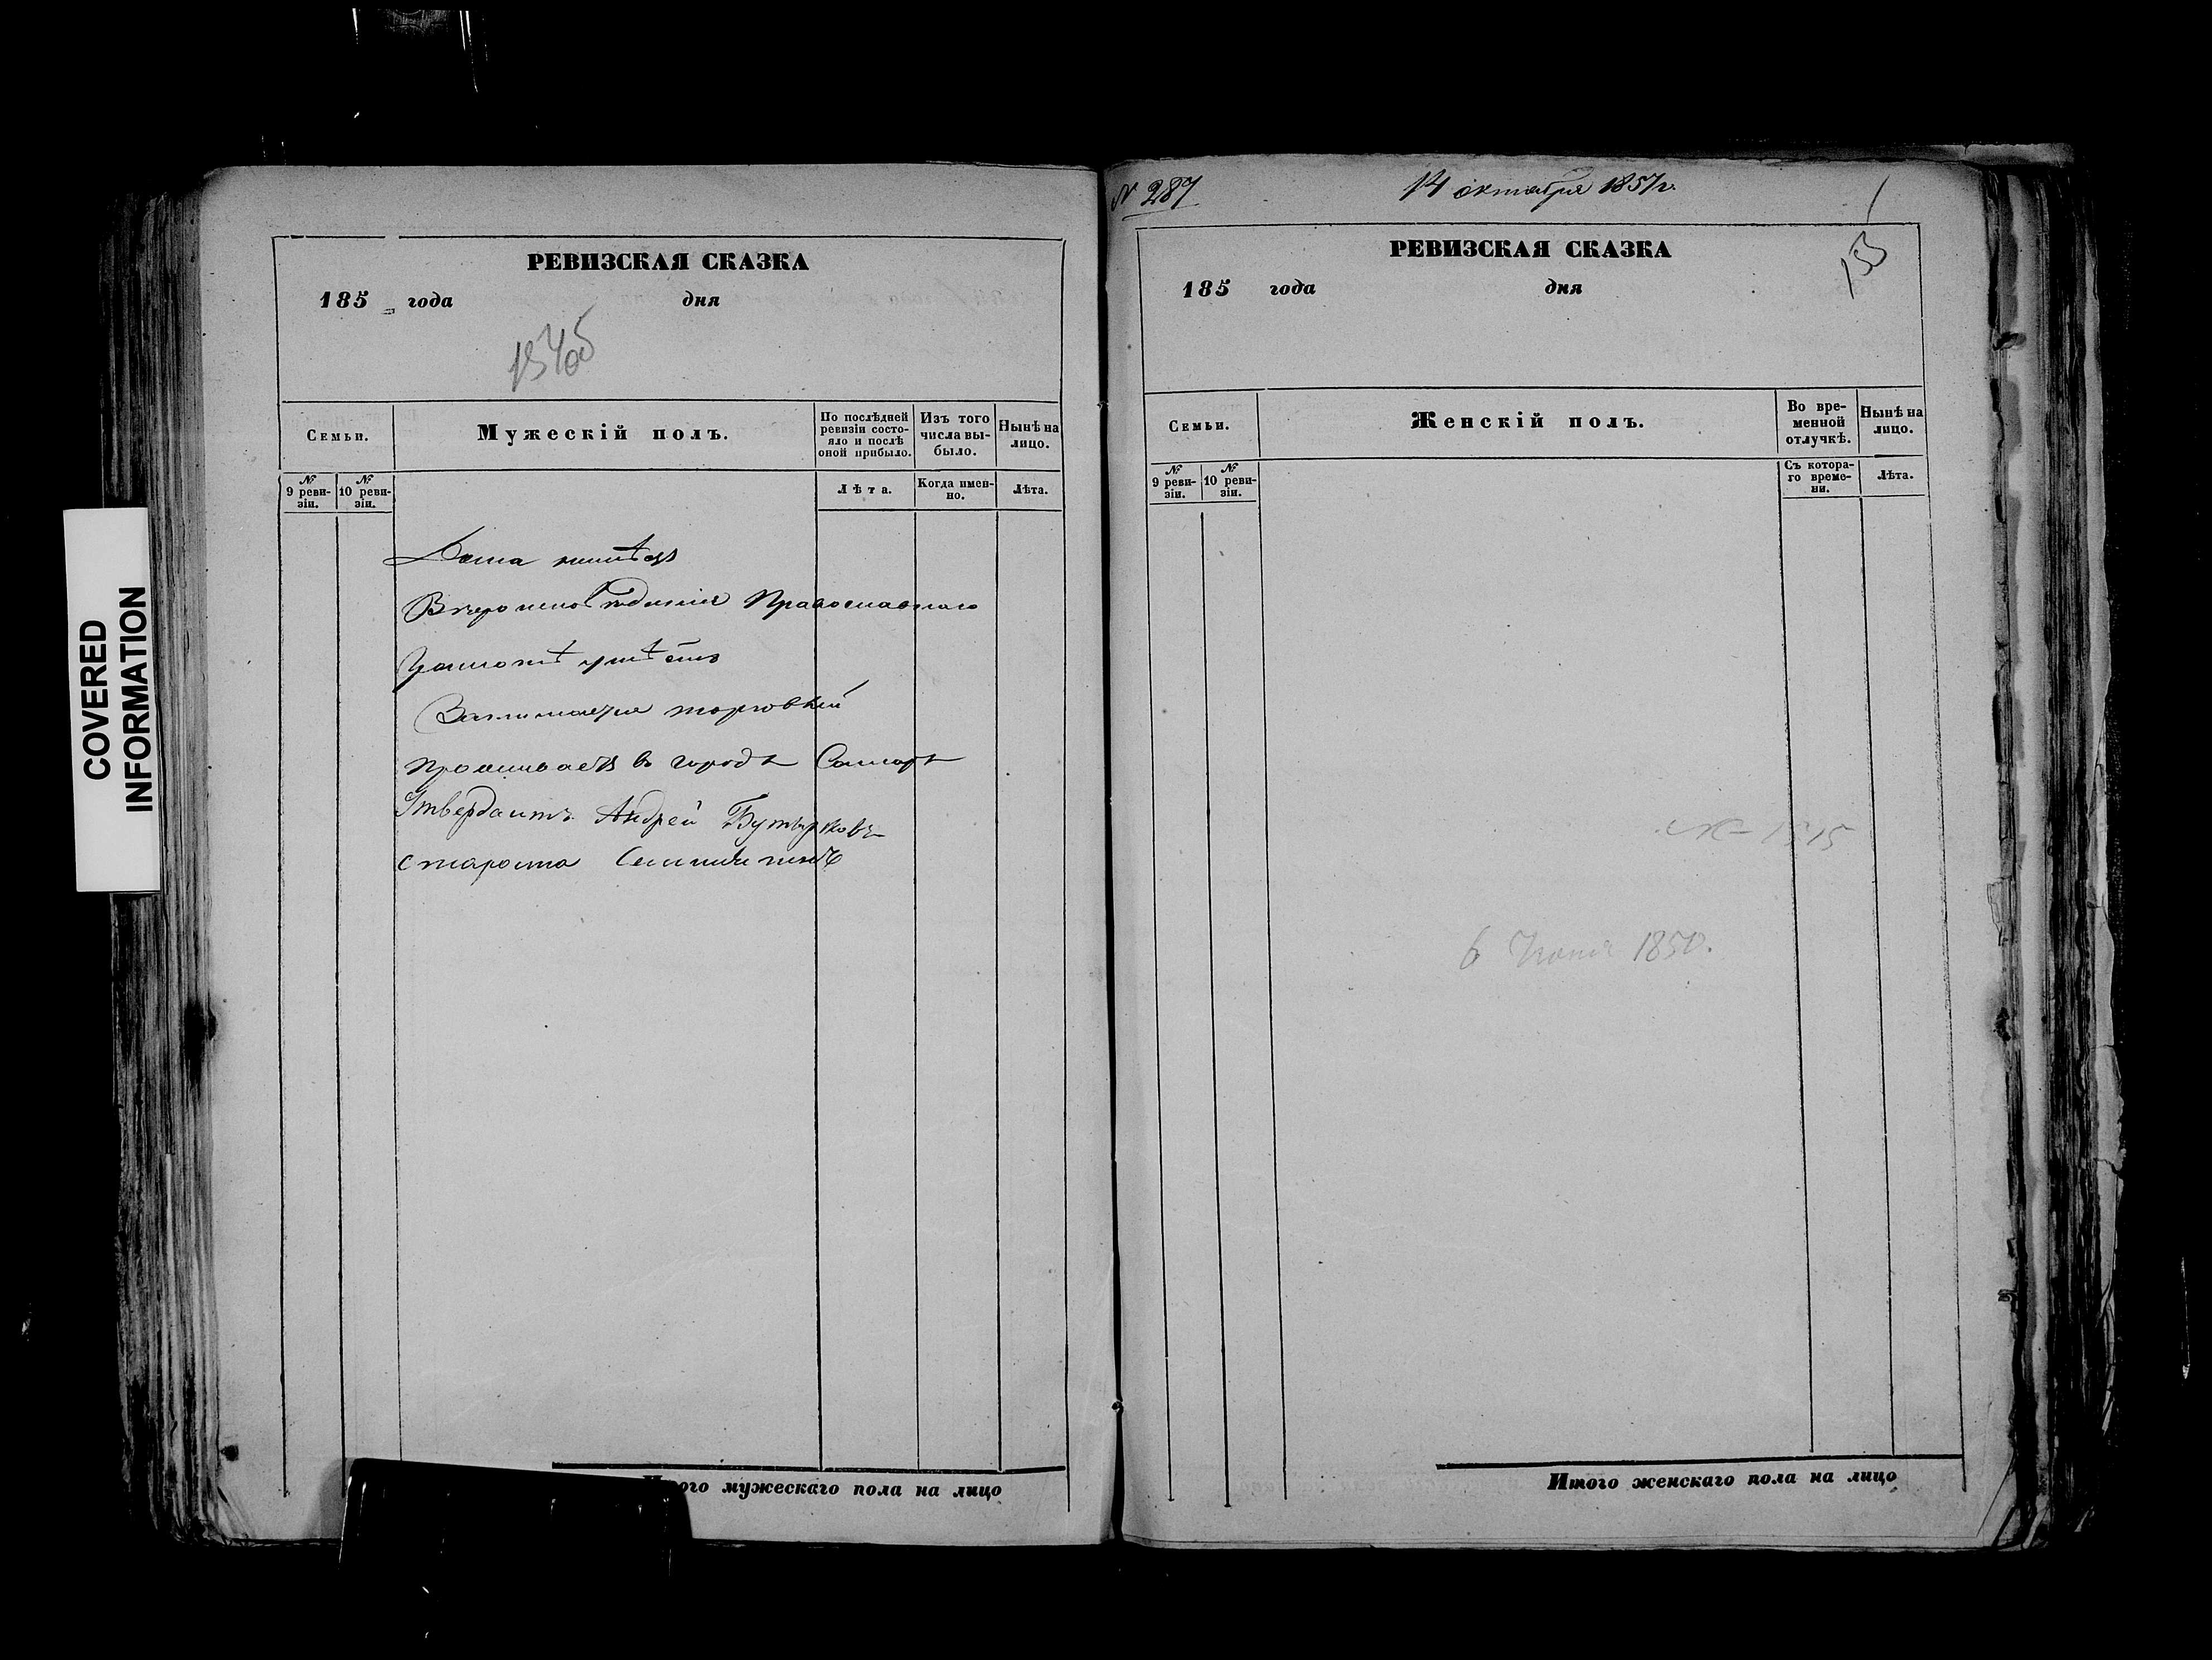 COVERED
INFORMATION
РЕВИЗСКАЯ СКАЗКА
185 года дня
Семьи.
Мужескій полъ.
По послѣдней ревизіи состояло и послѣ оной прибыло.
Изъ того числа выбыло.
Нынѣ на лицо.
№ 9 ревизіи.
№ 10 ревизіи.
Лѣта.
Когда именно.
Лѣта.
Дома имѣетъ
Вѣроисповѣданія Православнаго
Грамотѣ умѣетъ
Занимается торговлей
Проживаетъ въ городѣ Самарѣ
Утвердаитъ Андрей Бутырковъ
староста
ого мужескаго пола на лицо
№ 287
14 октября 1857 г.
153
РЕВИЗСКАЯ СКАЗКА
185 года дня
Семьи.
Женскій полъ.
Во временной отлучкѣ.
Нынѣ на лицо.
№ 9 ревизіи.
№ 10 ревизіи.
Съ котораго времени.
Лѣта.
6 1850.
Итого женскаго пола на лицо